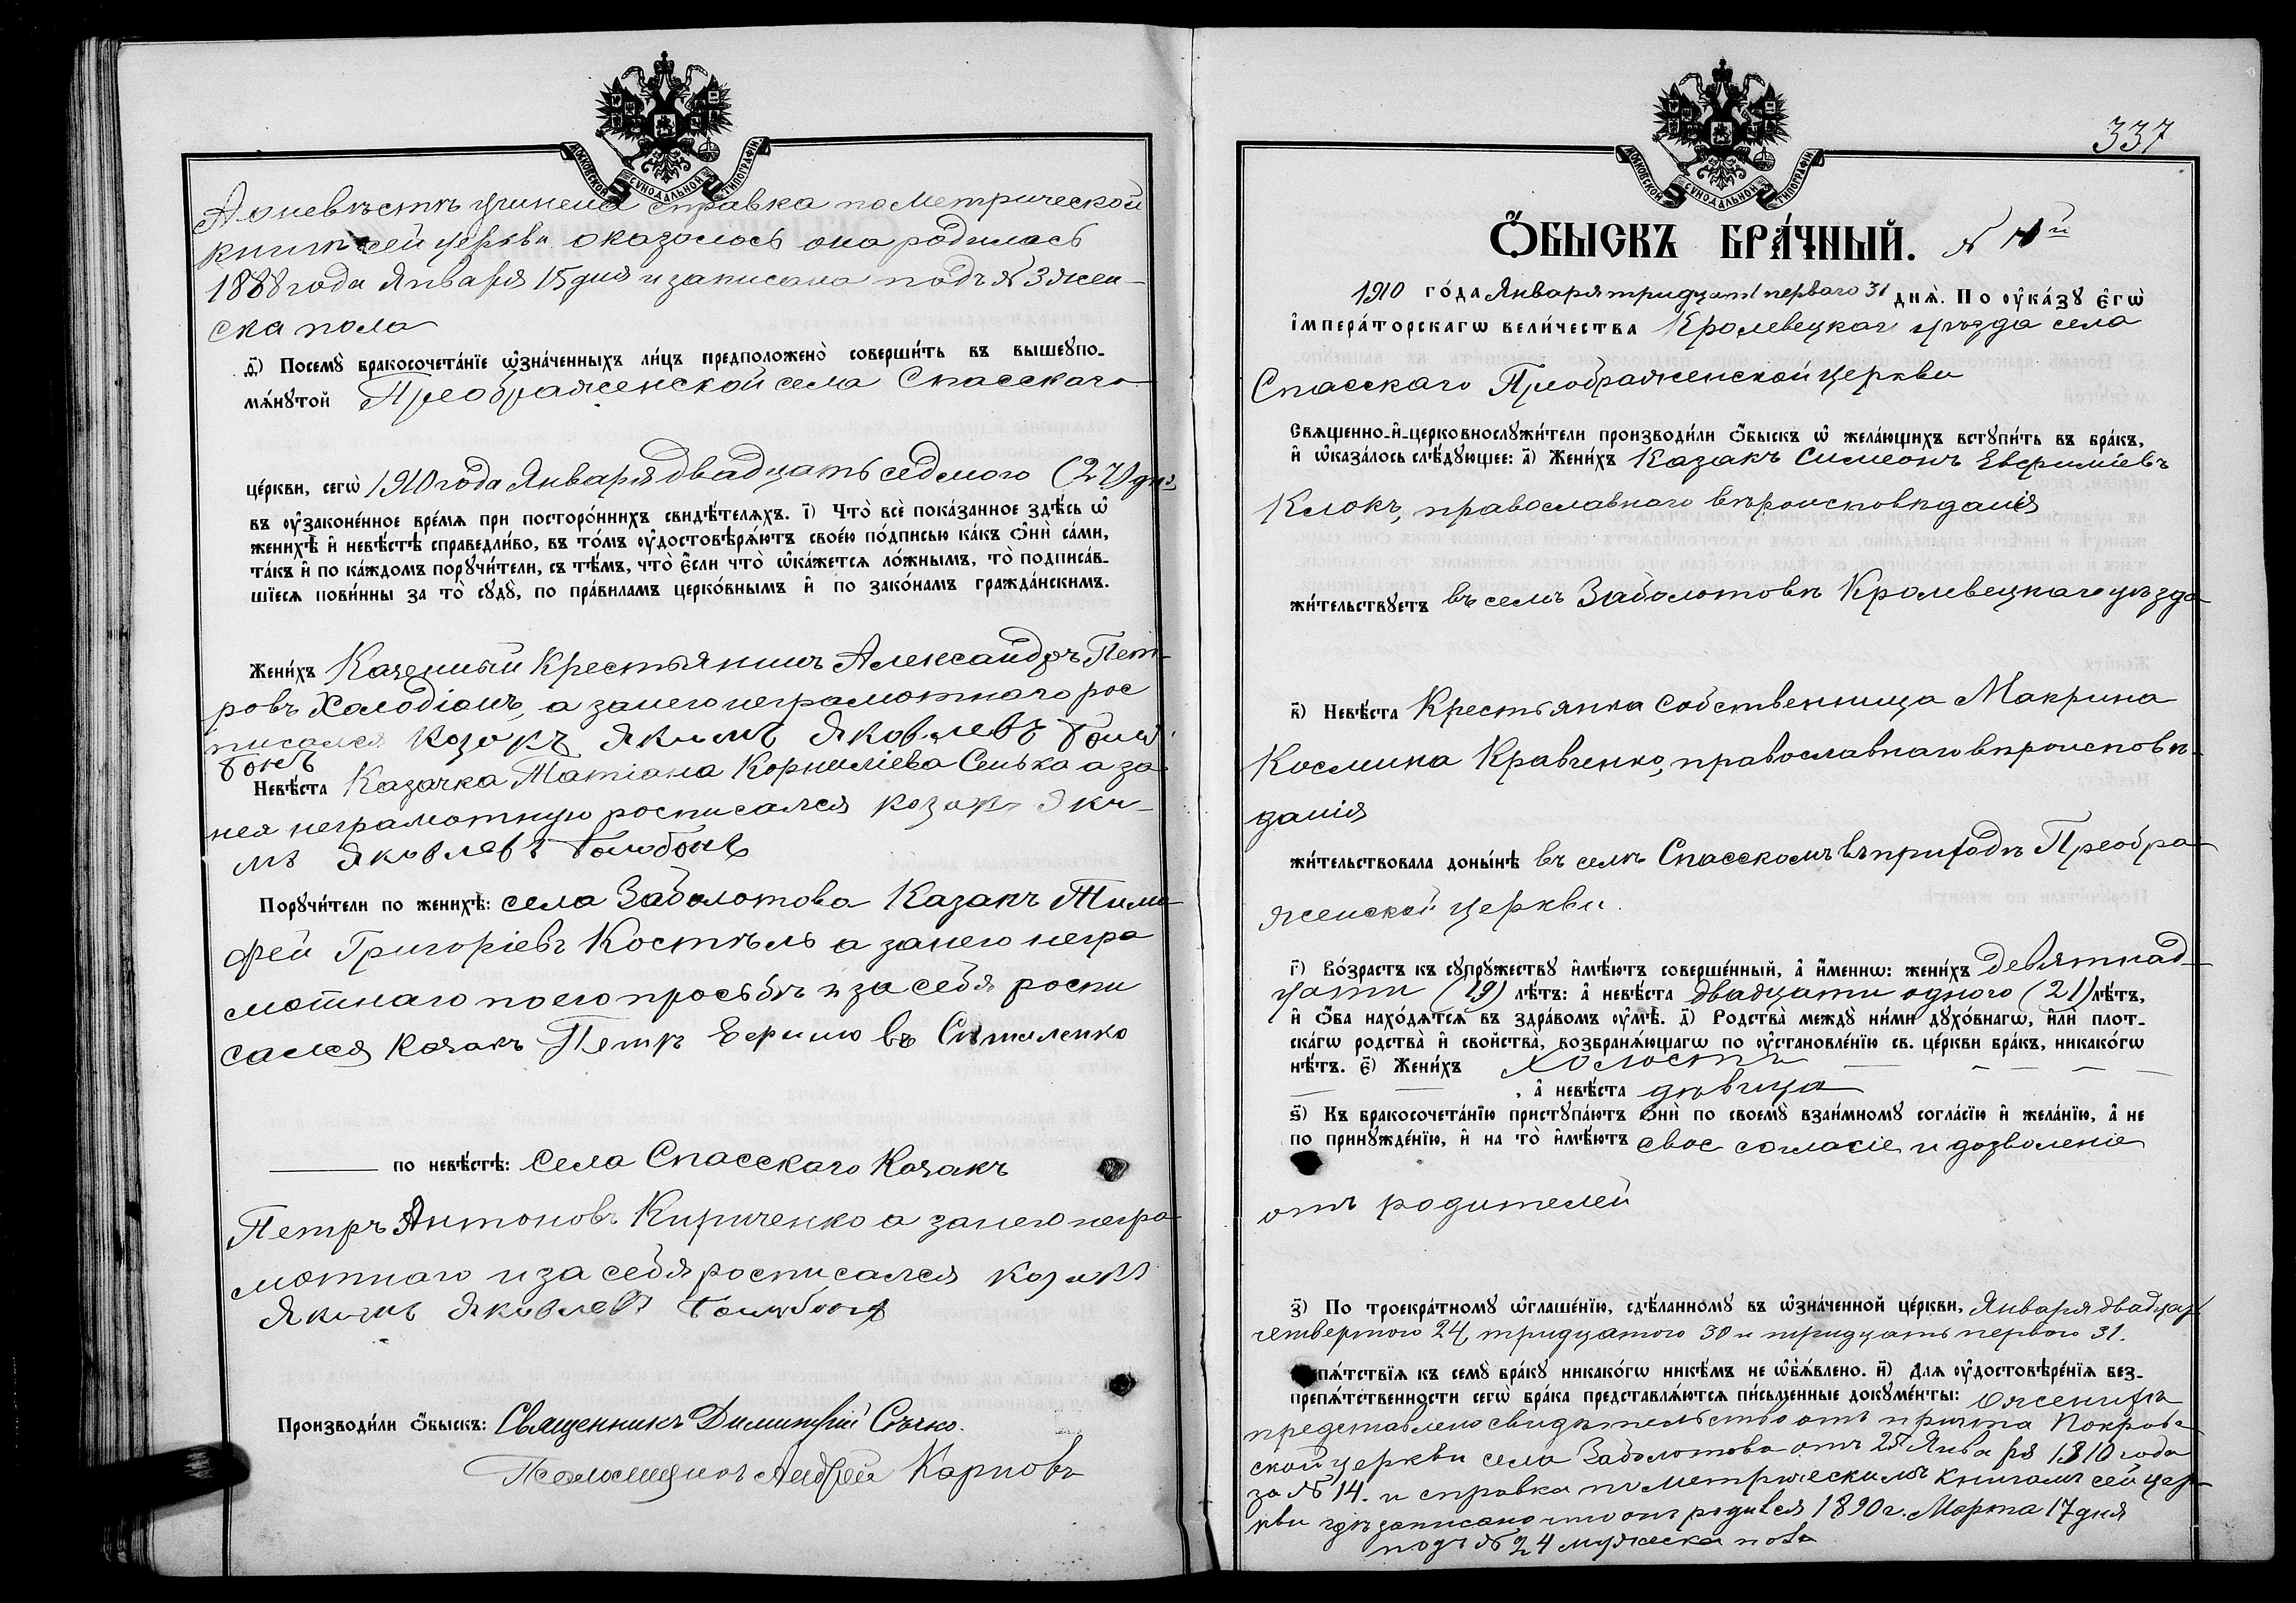 МОСКОВСКОЙ СУНОДАЛЬНОЙ ТИПОГРАФІИ
А о невѣстѣ учинена справка по метрической
книгѣ сей церкви оказалось она родилась
1888 года Января 15 дня и записана подъ № 3 жен-
ска пола
д҃) Посемꙋ̀ бракосочета́нїе ѡ҆зна́ченныхъ ли́цъ предположено̀ соверши́ть въ вышеꙋпо-
мѧ́нꙋтой Преображенской села Спасскаго
це́ркви, сегѡ̀ 1910 года Января двадцать седмого (27) дня
въ ᲂу҆законе́нное вре́мѧ при посторо́ннихъ свидѣ́телѧхъ. і҃) Что̀ всѐ пока́занное здѣ́сь ѡ҆
женихѣ̀ и҆ невѣ́стѣ справедли́во, въ то́мъ ᲂу҆достовѣрѧ́ютъ свое́ю по́дписью ка́къ ѻ҆нѝ са́ми,
та́къ и҆ по ка́ждомъ порꙋчи́тели, съ тѣ́мъ, что̀ є҆́сли что̀ ѡ҆ка́жетсѧ ло́жнымъ, то̀ подписа́в-
шїесѧ пови́нны за то̀ сꙋдꙋ̀, по пра́виламъ церко́внымъ и҆ по зако́намъ гражда́нскимъ.
Жени́хъ Казенный Крестьянинъ Александръ Пет-
ровъ Холодіонъ, а за него неграмотнаго рос
писался козакъ Якимъ Яковлевъ Голо
бокъ
Невѣ́ста Казачка Татіана Корниліева Сенько а за
нея неграмотную росписался козакъ Яки-
мъ Яковлевъ Голобокъ
Порꙋчи́тели по женихѣ̀: села Заболотова Казакъ Тимо
фей Григоріевъ Костѣль а за него негра
мотнаго по его просьбѣ и за себя роспи
сался козакъ Петръ
по невѣ́стѣ: Села Спасскаго Козакъ
Петръ Антоновъ Кириченко а за него негра
мотнаго и за себя росписался козакъ
Якимъ Яковлевъ Голобокъ
Производи́ли ѻ҆́быскъ: Священникъ Димитрій Сѣчко.
Псаломщикъ Андрей Карповъ
337
МОСКОВСКОЙ СУНОДАЛЬНОЙ ТИПОГРАФІИ
Ѻ҆́БЫСКЪ БРА́ЧНЫЙ. №
1910 го́да Января тридцать перваго 31 днѧ̀. По ᲂу҆ка́зꙋ є҆гѡ̀
і҆мпера́торскагѡ вели́чества Кролевецкаго уѣзда села
Спасскаго Преображенской церкви
Свѧщенно-и҆-церковнослꙋжи́тели производи́ли ѻ҆́быскъ ѡ҆ жела́ющихъ встꙋпи́ть въ бра́къ,
и҆ ѡ҆каза́лось слѣ́дꙋющее: а҃) Жени́хъ Казакъ Симеонъ Евфиміевъ
Клокъ, православнаго вѣроисповѣданія
жи́тельствꙋетъ въ селѣ Заболотовѣ Кролевецкаго уѣзда
в҃) Невѣ́ста Крестьянка собственница Макрина
Космина Кравченко, православнаго вѣроисповѣ-
данія
жи́тельствовала доны́нѣ въ селѣ Спасскомъ въ приходѣ Преобра-
женской церкви.
г҃) Во́зрастъ къ сꙋпрꙋжествꙋ и҆мѣ́ютъ соверше́нный, а҆ и҆́меннѡ: жени́хъ девятнад-
цати (19) лѣ́тъ: а҆ невѣ́ста двадцати одного (21) лѣ́тъ,
и҆ ѻ҆́ба нахо́дѧтсѧ въ здра́вомъ ᲂу҆мѣ̀. д҃) Родства̀ междꙋ̀ ни́ми дꙋхо́внагѡ, и҆лѝ плот-
ска́гѡ родства̀ и҆ свойства̀, возбранѧ́ющагѡ по ᲂу҆становле́нїю св. це́ркви бра́къ, никако́гѡ
нѣ́тъ. є҃) Жени́хъ холостъ
, а҆ невѣ́ста дѣвица
ѕ҃) Къ бракосочета́нїю пристꙋпа́ютъ ѻ҆нѝ по своемꙋ̀ взаи́мномꙋ согла́сїю и҆ жела́нїю, а҆ не
по принꙋжде́нїю, и҆ на то̀ и҆мѣ́ютъ свое согласіе и дозволеніе
отъ родителей
з҃) По троекра́тномꙋ ѡ҆глаше́нїю, сдѣ́ланномꙋ въ ѡ҆зна́ченной це́ркви, Января двадцать
четвертого 24, тридцатого 30 и тридцать первого 31.
пѧ́тствїѧ къ семꙋ̀ бра́кꙋ никако́гѡ никѣ́мъ не ѡ҆б̾ѧ́влено. и҃) Для ᲂу҆достовѣре́нїѧ без-
препѧ́тственности сегѡ̀ бра́ка представлѧ́ютсѧ пи́сьменные докꙋме́нты: О женихѣ
представлено свидѣтельство отъ причта Покров-
ской церкви села Заболотова отъ 25 Января 1910 года
за № 14. и справка по метрическимъ книгамъ сей цер-
кви гдѣ записано что онъ родился 1890 г. Марта 17 дня
подъ № 24 мужеска пола